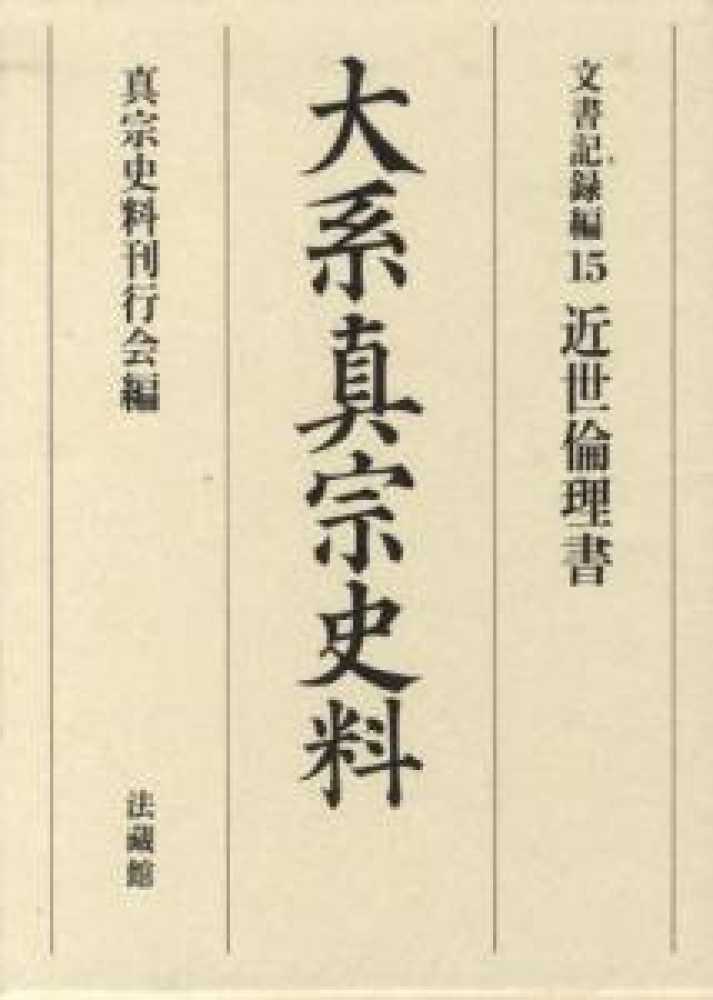 文書記録編15 近世倫理書
大系真宗史料
真宗史料刊行会編
法藏館